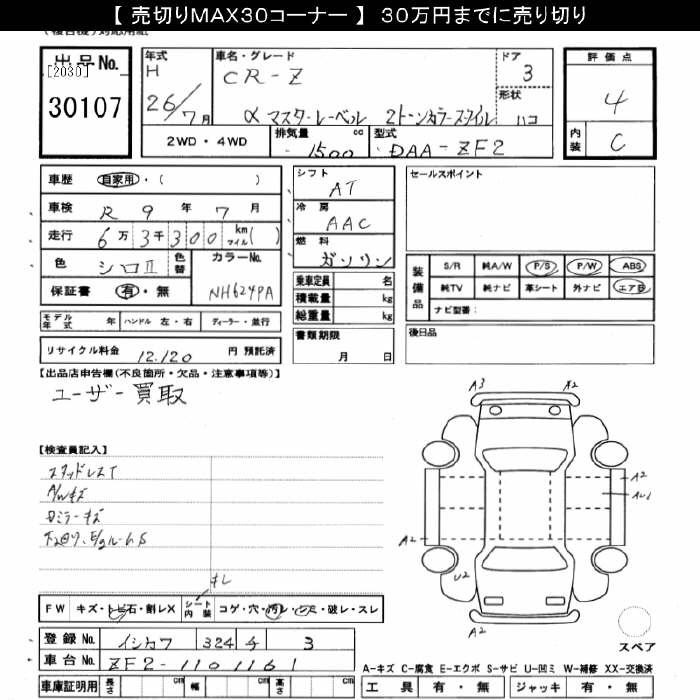 【 売切りMAX30コーナー 】 30万円までに売り切り
出品No.
[2030]
30107
年式 H 26/7月
車名・グレード
CR-Z
α マスターレーベル 2トーンカラースタイル
ドア 3
形状 ハコ
2WD・4WD
排気量 1500 cc
型式 DAA-ZF2
評価点
4
内装 C
車歴 自家用・( )
車検 R 9 年 7 月
走行 6万3千300 km マイル( )
色 シロⅡ 色替
カラーNo. NH624PA
保証書 有・無
シフト AT
冷房 AAC
燃料 ガソリン
乗車定員 名
積載量 kg
総重量 kg
書類期限
月 日
モデル年式 年 ハンドル 左・右 ディーラー・並行
リサイクル料金 12,120 円 預託済
セールスポイント
装備品
S/R 純A/W P/S P/W ABS
純TV 純ナビ 革シート 外ナビ エアB
ナビ型番:
後日品
【出品店申告欄(不良箇所・欠品・注意事項等)】
ユーザー買取
【検査員記入】
スタッドレスT
A/Wキズ
ミラーキズ
A3
A2
A2
A2
U2
A2
キレ
FW キズ・トビ石・割レX
シート内装 コゲ・穴・汚レ・シミ・破レ・スレ
登録No. イシカワ 324 チ 3
車台No. ZF2-1101161
車庫証明用 長さ cm 幅 cm 高さ cm
スペア
A-キズ C-腐食 E-エクボ S-サビ U-凹ミ W-補修 XX-交換済
工具 有・無 ジャッキ 有・無